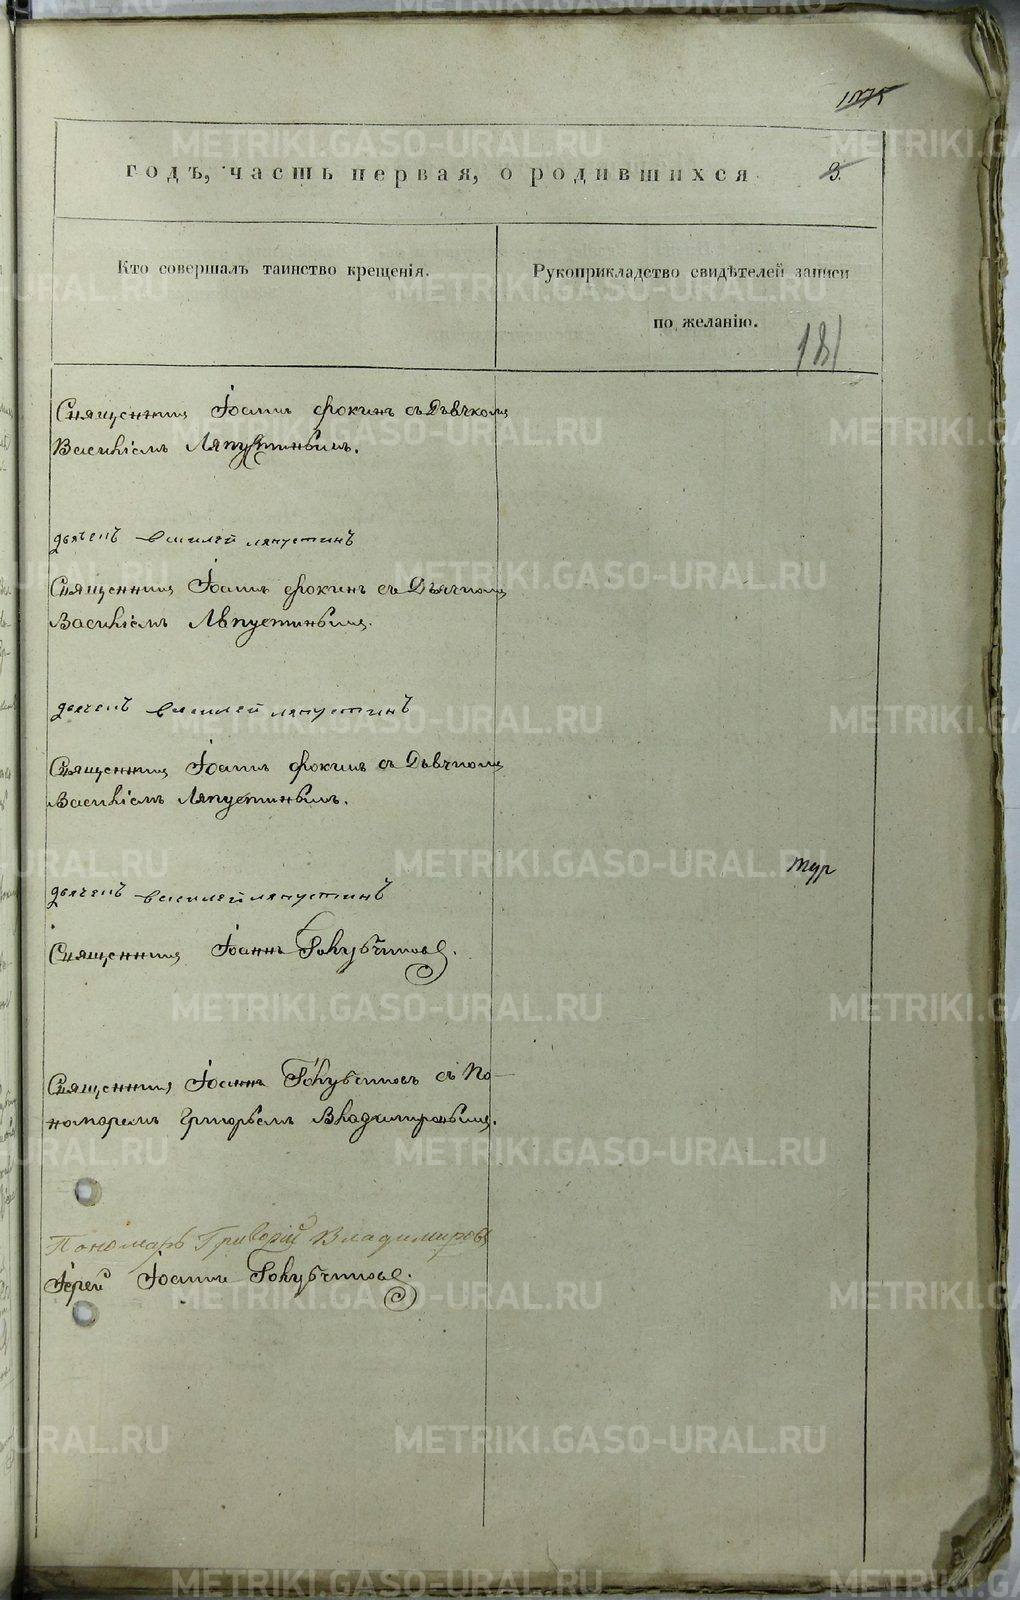 1875
годъ, часть первая, о родившихся
3.
Кто совершалъ таинство крещенія.
Рукоприкладство свидѣтелей записи
по желанію.
181
Священникъ Іоаннъ Фокинъ съ Дьячкомъ
Василіемъ Ляпустинымъ.
дьячекъ василей ляпустинъ
Священникъ Іоаннъ Фокинъ съ Дьячкомъ
Василіемъ Ляпустинымъ.
дьячекъ василей ляпустинъ
Священникъ Іоаннъ Фокинъ съ Дьячкомъ
Василіемъ Ляпустинымъ.
дьячекъ василей ляпустинъ
Священникъ Іоаннъ Голубчиковъ.
Священникъ Іоаннъ Голубчиковъ съ По-
номаремъ Григорьемъ Владимировымъ.
Пономарь Григорій Владимировъ
Іерей Іоаннъ Голубчиковъ.
METRIKI.GASO-URAL.RU